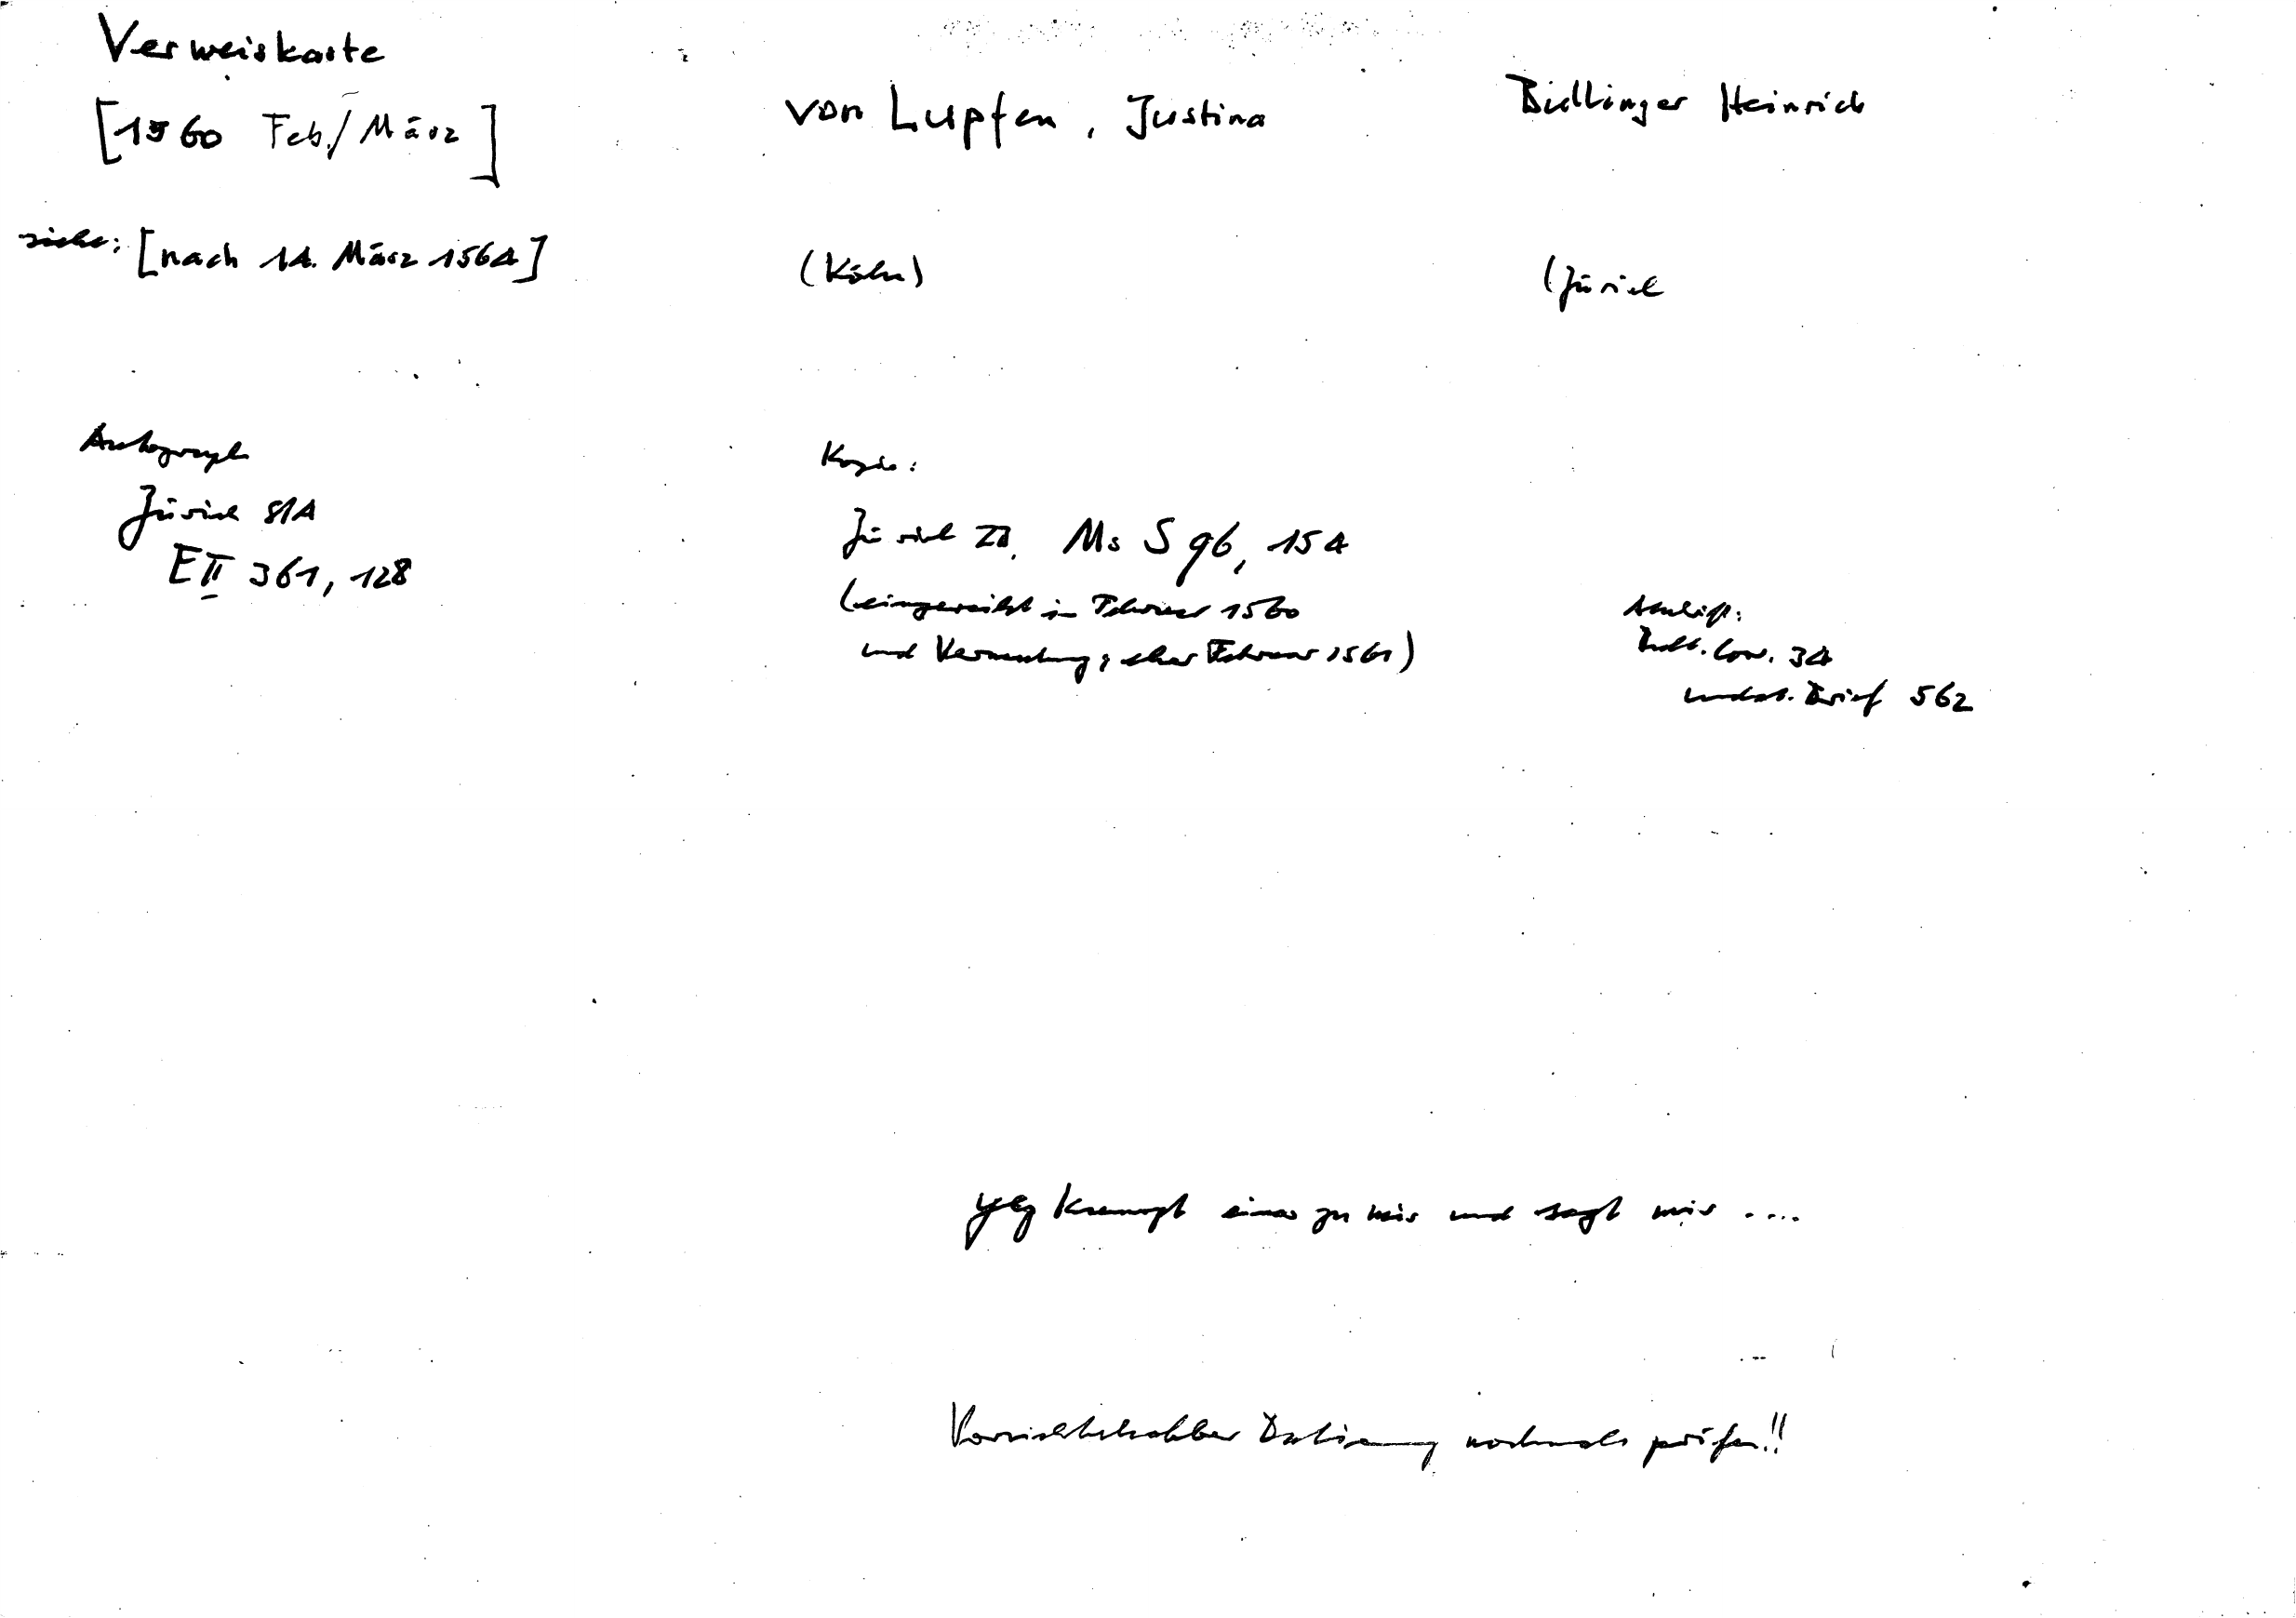 Verweiskarte
[1560 Feb./März]
von Lupfen, Justina
Bullinger Heinrich
siehe: [nach 14. März 1564]
(Köln)
(Zürich
Autograph
Zürich StA
E II 361, 128
Kopie:
Zürich ZB, Ms S 96, 154
(eingereiht in Februar 1560
und Vermerkung: eher Februar 1561)
Abschr.:
Bull. Corr. 34
undat. Brief 562
Yetz kumpt einer zu mir und sagt mir ....
Vorsichtshalber Datierung nochmals prüfen!!